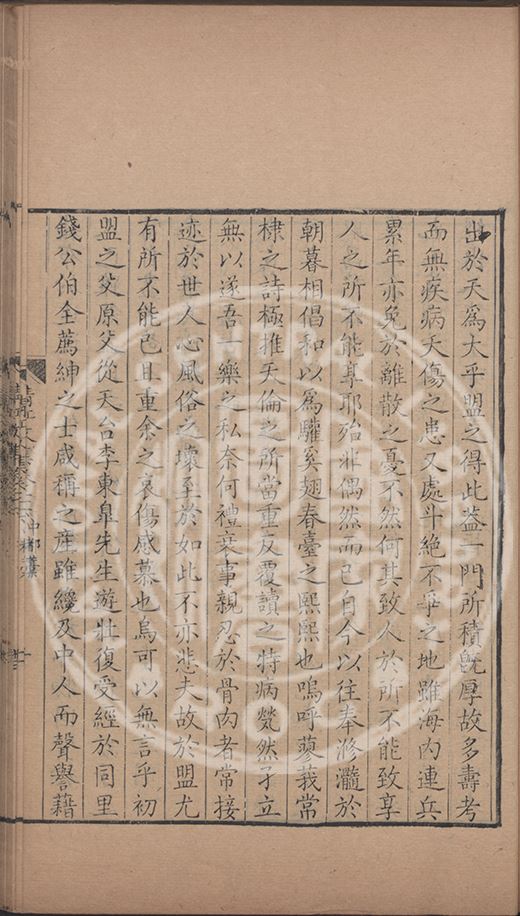 出於天爲大乎盟之得此葢一門所積旣厚故多壽考
而無疾病夭傷之患又處斗絶不爭之地雖海内連兵
累年亦免於離散之憂不然何其致人於所不能致享
人之所不能享耶殆非偶然而已自今以徃奉滫瀡於
朝暮相倡和以爲驩奚翅春臺之熙熙也嗚呼蓼莪常
棣之詩極推天倫之所當重反覆讀之特病煢然孑立
無以遂吾一樂之私奈何禮衰事親忍於骨肉者常接
迹於世人心風俗之壞至於如此不亦悲夫故於盟尤
有所不能已且重余之哀傷感慕也烏可以無言乎初
盟之父原父從天台李東臯先生遊壯復受經於同里
錢公伯全薦紳之士咸稱之産雖纔及中人而聲譽藉
中都藁